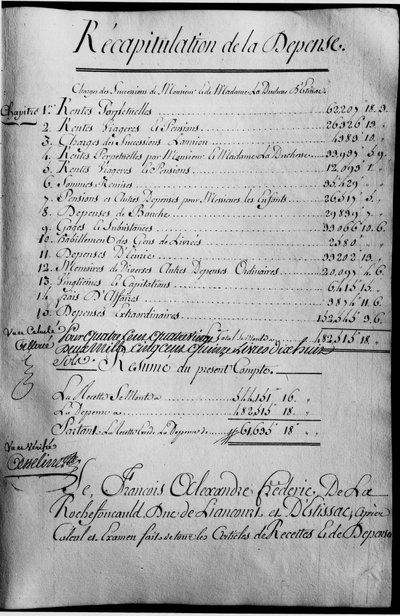 Récapitulation de la Depense.
Charges des Successions de Monsieur & de Madame La Duchesse D'Estissac
Chapitre 1er Rentes Perpetuelles 62207 18. 9.
2. Rentes Viageres & Pensions 26326 13
3. Charges des Successions Lannion 4983 10
4. Rentes Perpetuelles par Monsieur & Madame La Duchesse 33937 5. 9.
5. Rentes Viageres & Pensions 12093 1.
6. Sommes Remises 35429
7. Pensions et Autres Depenses pour Messieurs les Enfants 26317 5.
8. Depenses de Bouche 29899 7.
9. Gages & Subsistances 33066 10. 6.
10. Habillement des Gens de Livrée 2380
11. Depenses D'Ecurie 33202 13.
12. Memoires de Diverses Autres Depenses Ordinaires 20,097 4. 6.
13. Vingtiemes & Capitations 6415 13.
14. Frais D'Affaires 9874 11. 6.
15. Depenses Extraordinaires 152,345 3. 6.
Vu et Calculé
Total Se Monte a 482,515 18
Pour quatre Cent quatre vingt
Deux Mille Cinq Cent quinze Livres dix huit
Sols
Resume du present Compte.
La Recette Se Monte a 544,151 16.
La Depense a 482,515 18
Partant La Recette Excede La Depense de 61,635 18
Vu et Vérifié
Je, François Alexandre Frederic De La
Rochefoucauld Duc de Liancourt et D'Estissac, après
Calcul et Examen fait de tous les Articles de Recettes & de Depense